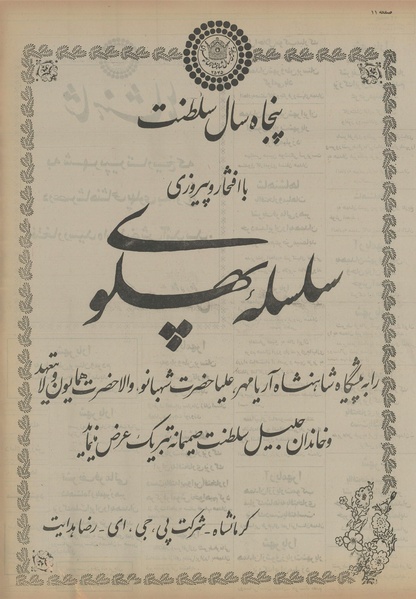 صفحه ۱۱
پنجاه سال سلطنت
با افتخار و پیروزی
سلسلهٔ پهلوی
را به پیشگاه شاهنشاه آریامهر، علیاحضرت شهبانو، والاحضرت همایون ولایتعهد
و خاندان جلیل سلطنت صمیمانه تبریک عرض مینماید
کرمانشاه - شرکت پی . جی . ای - رضا هدایت